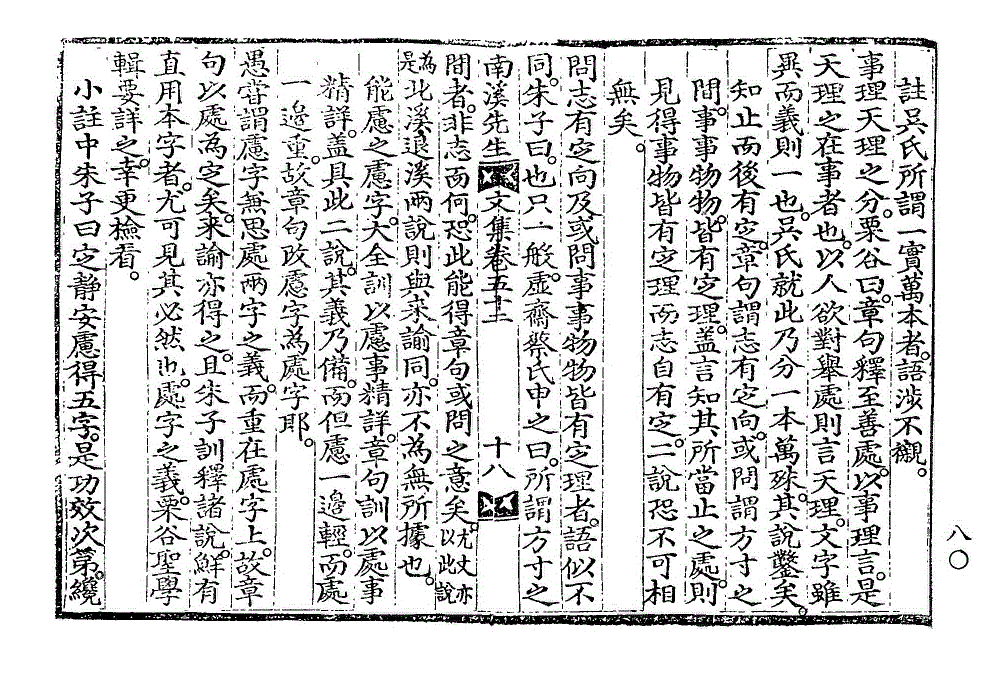 註吳氏所謂一實萬本者。語涉不襯。
事理天理之分。栗谷曰。章句釋至善處。以事理言。是
天理之在事者也。以人欲對舉處則言天理。文字雖
異而義則一也。吳氏就此乃分一本萬殊。其說鑿矣。
知止而後有定。章句謂志有定向。或問謂方寸之
間。事事物物。皆有定理。蓋言知其所當止之處。則
見得事物皆有定理而志自有定。二說恐不可相
無矣。
問志有定向及或問事事物物皆有定理者。語似不
同。朱子曰。也只一般。虛齋蔡氏申之曰。所謂方寸之
南溪先生文集卷五十二
十八
間者。非志而何。恐此能得章句或問之意矣。尤丈亦以此說
為是
北溪退溪兩說則與來諭同。亦不為無所據也。
能慮之慮字。大全訓以慮事精詳。章句訓以處事
精詳。蓋具此二說。其義乃備。而但慮一邊輕。而處
一邊重。故章句改慮字為處字耶。
愚嘗謂慮字無思處兩字之義。而重在處字上。故章
句以處為定矣。來諭亦得之。且朱子訓釋諸說。鮮有
直用本字者。尤可見其必然也。處字之義。栗谷聖學
輯要詳之。幸更檢看。
小註中朱子曰定靜安慮得五字。是功效次第。纔
八〇